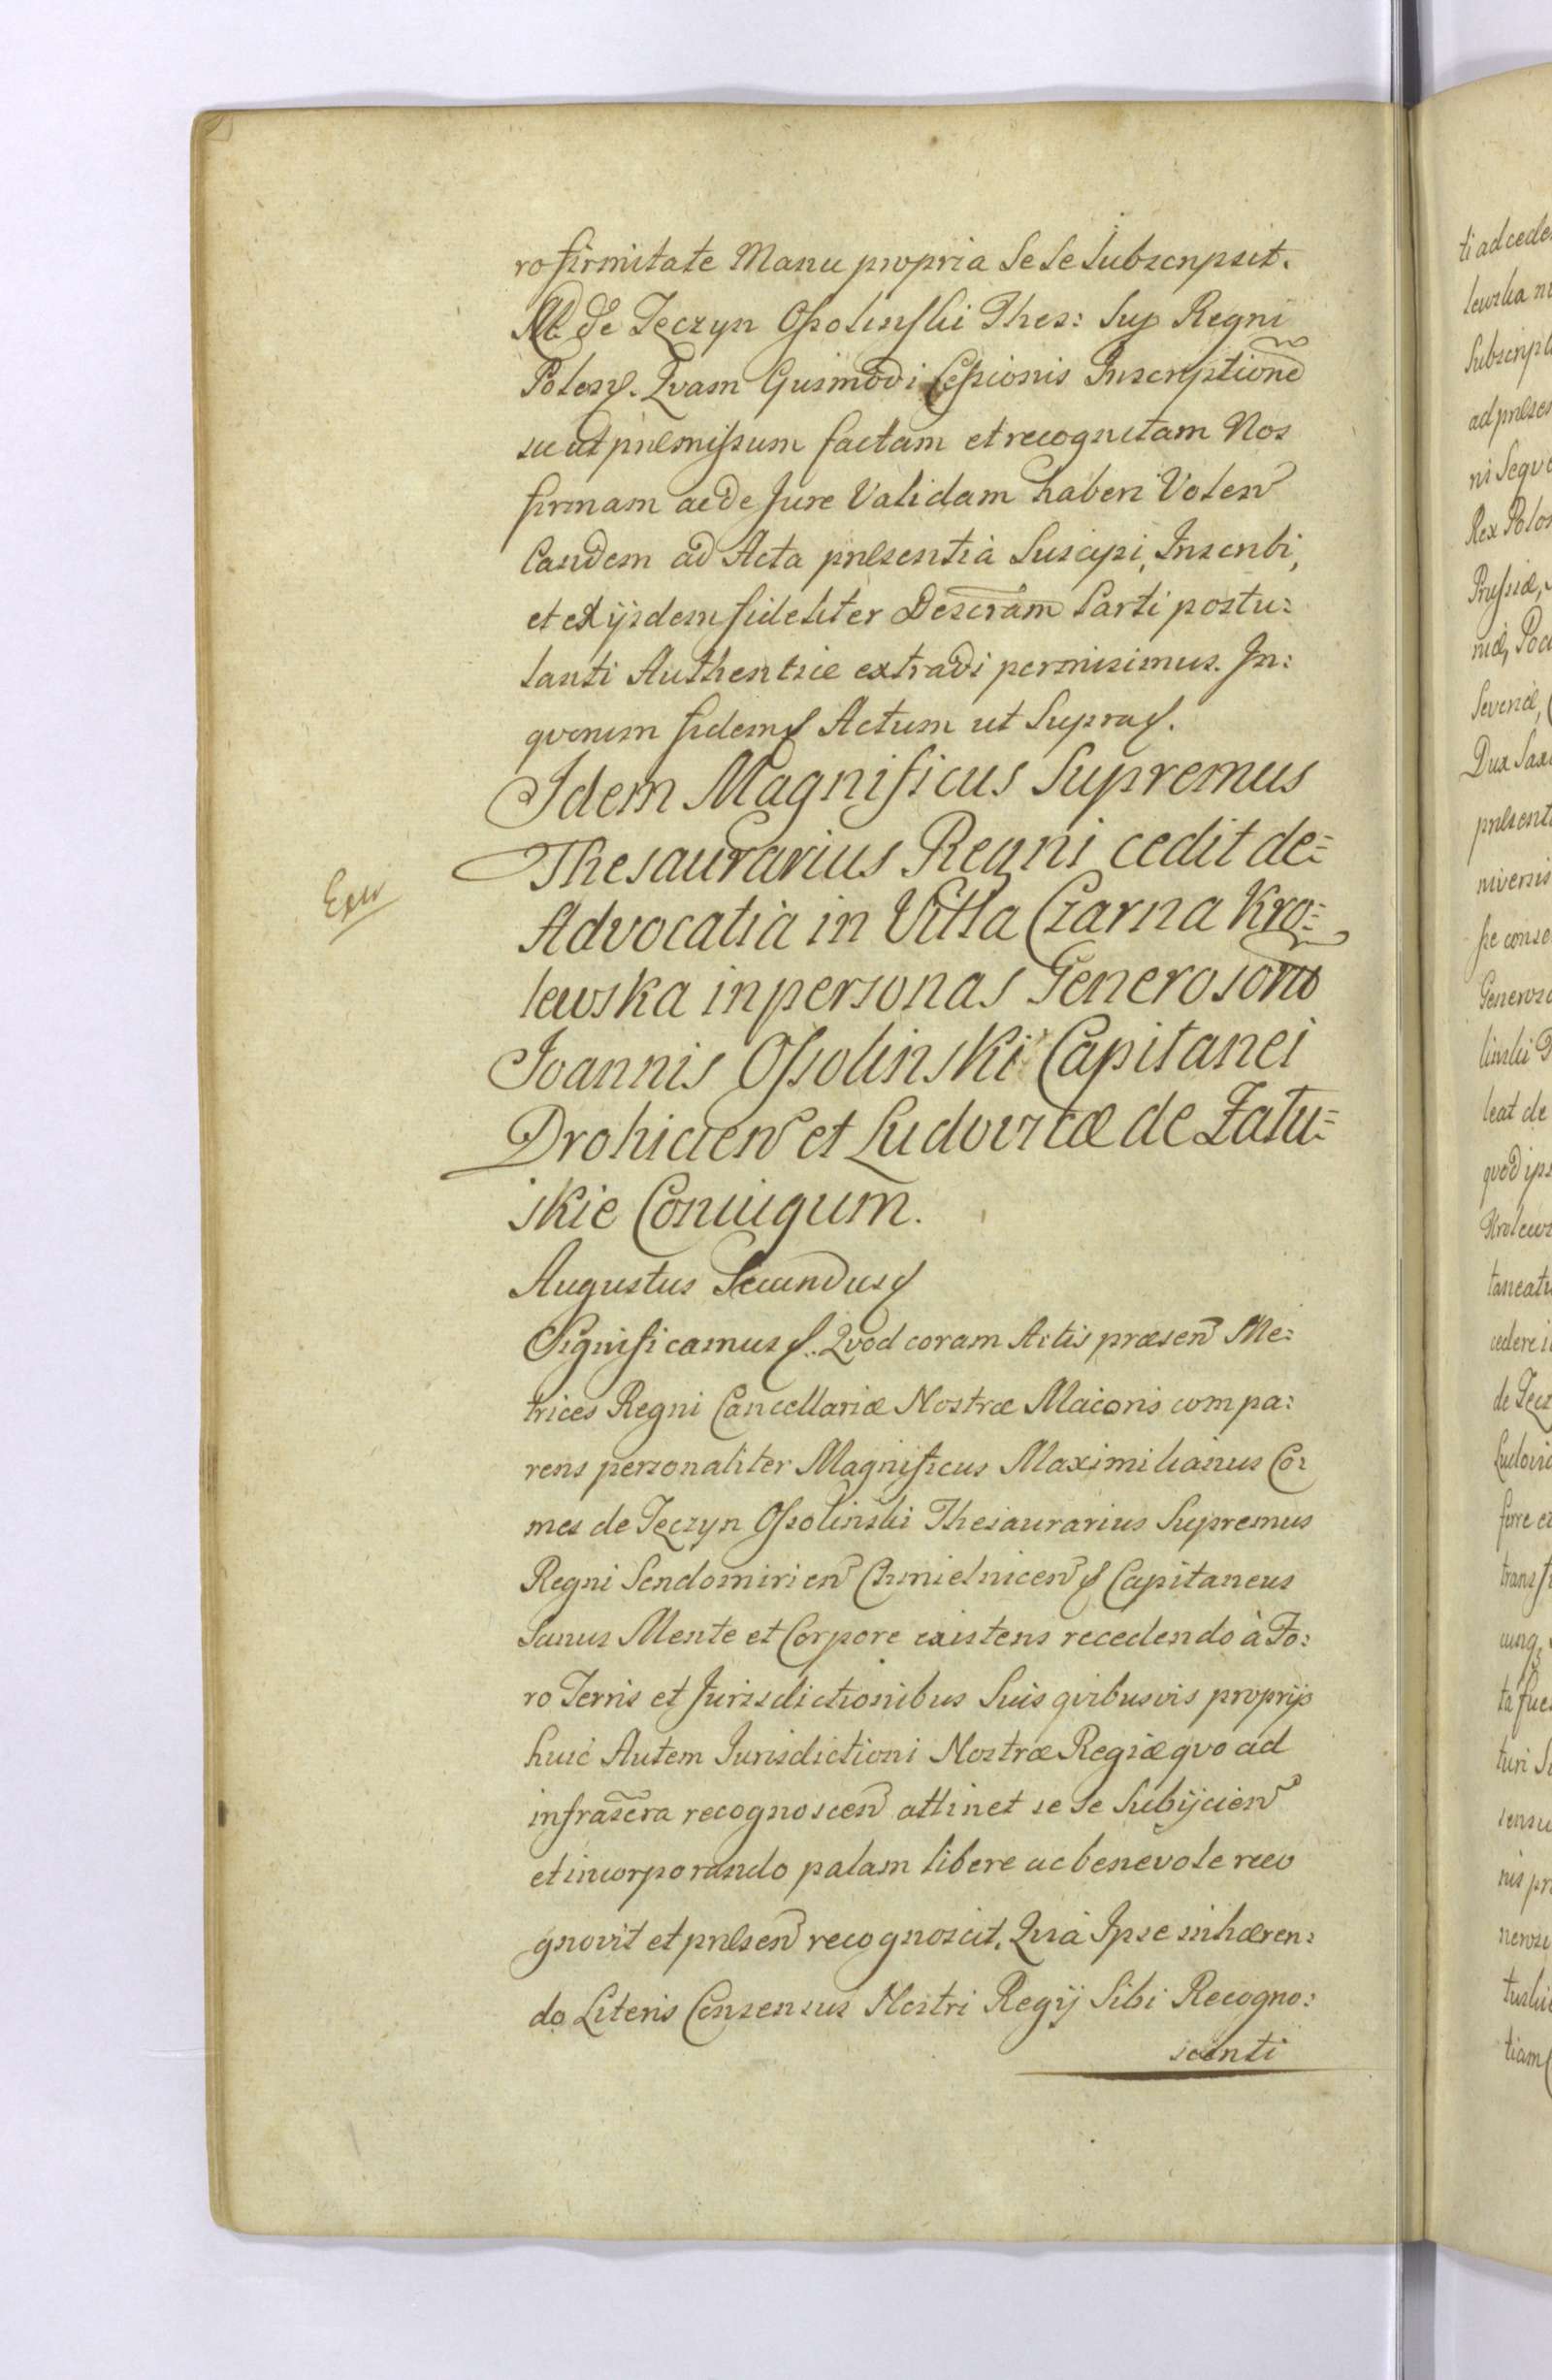 ro firmitate Manu propria Se Se Subscripsit.
M. de Tęczyn Ossolinski Thes: Sup Regni
Polon. Qvam Eiusmodi Cessionis Inscriptionē
sic ut pnlemissum factam et recognitam Nos
firmam ac de Jure Validam haberi Volen
Eandem ad Acta pnlesentia Suscipi, Inscribi,
et ex ijsdem fideliter Descram Parti postu:
lanti Authentice extradi permisimus. In:
qvorum fidem Actum ut Supra.
Idem Magnificus Supremus
Thesaurarius Regni cedit de=
Exw
Advocatia in Villa Czarna Kro=
lewska in personas Generosorū
Joannis Ossolinski Capitanei
Drohicien et Ludovicæ de Zału=
skie Coniugum.
Augustus Secundus
Significamus. Qvod coram Actis præsen Me:
trices Regni Cancellariæ Nostræ Maioris compa:
rens personaliter Magnificus Maximilianus Co:
mes de Tęczyn Ossolinski Thesaurarius Supremus
Regni Sendomirien Chmielnicen Capitaneus
Sanus Mente et Corpore existens recedendo à Fo:
ro Terris et Jurisdictionibus Suis qvibusvis proprijs
huic Autem Jurisdictioni Nostræ Regiæ qvo ad
infrascra recognoscen attinet se Se Subijcien
et incorporando palam libere ac benevole reco
gnovit et pnlesen recognoscit, Qvia Ipse inhæren:
do Literis Consensus Nostri Regij Sibi Recogno:
scenti
ti ad cede
lewska
Subscript
ad pnlesen
ni Seqv
Rex Polon
Prussiæ,
niæ, Pod
Severiæ,
Dux Sax
pnlesent
niversis
se conse
Generoso
linski
leat de
qvod ips
Krolews
taneatu
cedere i
de Tęcz
Ludovi
ferre et
transf
cunq
ta fue
turi S
sensu
nis pr
neroso
tuskie
tiam